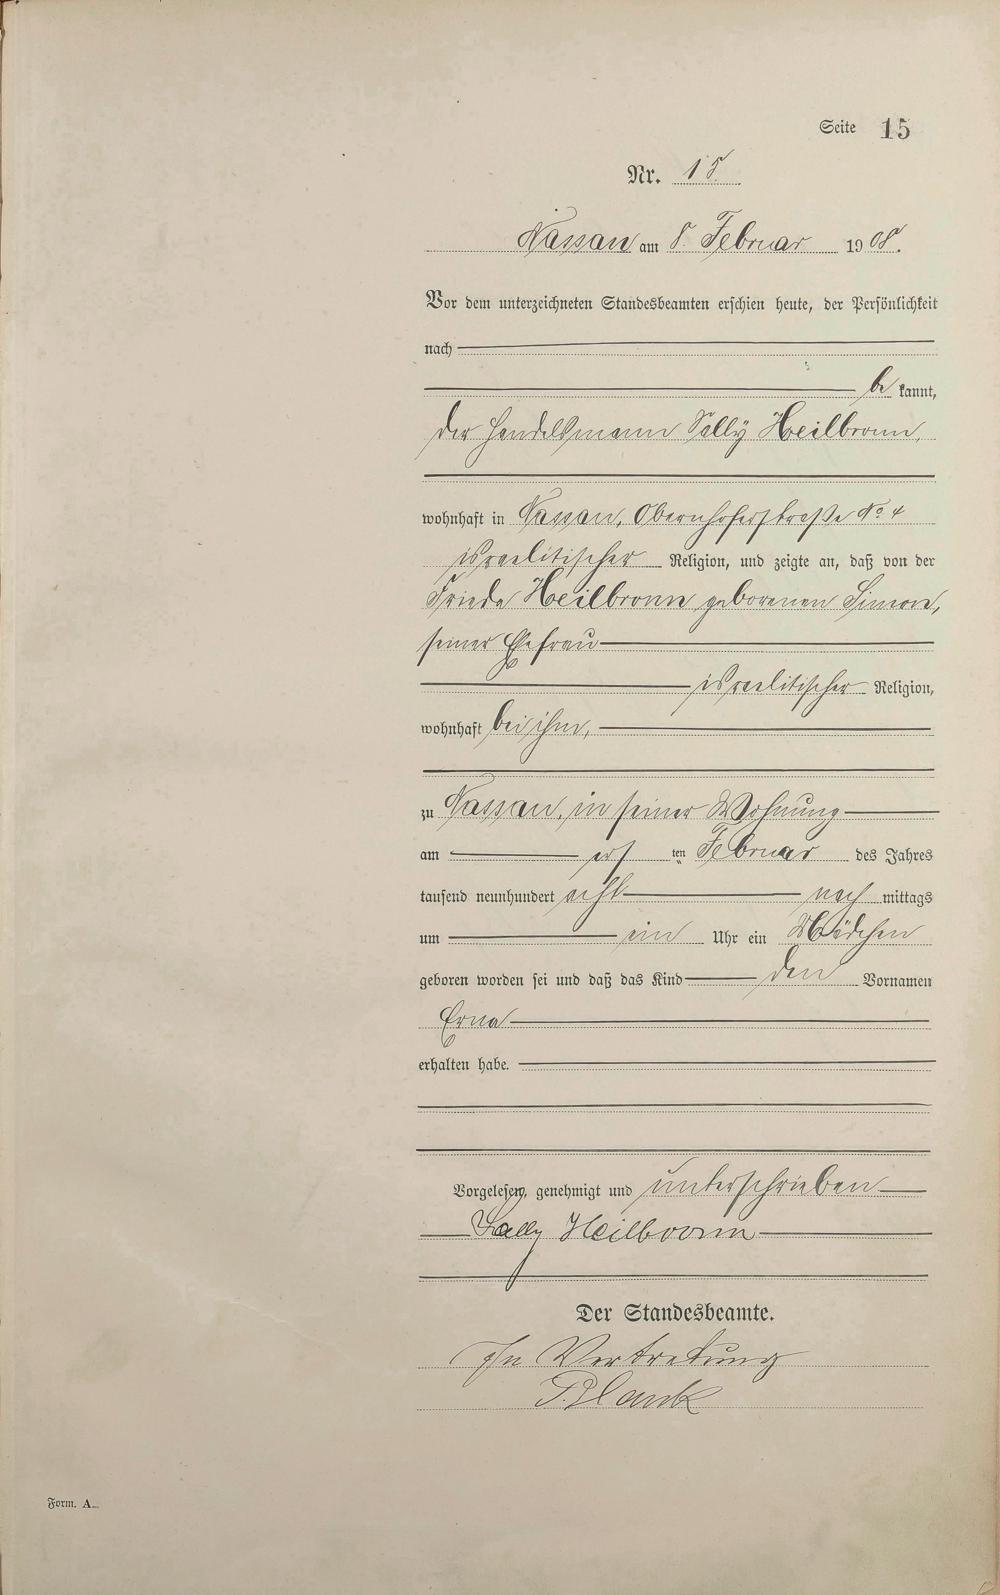 Seite 15
Nr. 15.
Nassau am 8. Februar 1908.
Vor dem unterzeichneten Standesbeamten erschien heute, der Persönlichkeit
nach
be kannt,
der Handelsmann Sally Heilbronn,
wohnhaft in Nassau, Obernhoferstraße No 4
israelitischer Religion, und zeigte an, daß von der
Frieda Heilbronn geborenen Simon,
seiner Ehefrau
israelitischer Religion,
wohnhaft bei ihm,
zu Nassau, in seiner Wohnung
am ersten Februar des Jahres
tausend neunhundert acht nachmittags
um ein Uhr ein Mädchen
geboren worden sei und daß das Kind den Vornamen
Erna
erhalten habe.
Vorgelesen, genehmigt und unterschrieben
Sally Heilbronn
Der Standesbeamte.
In Vertretung
Plank
Form. A.